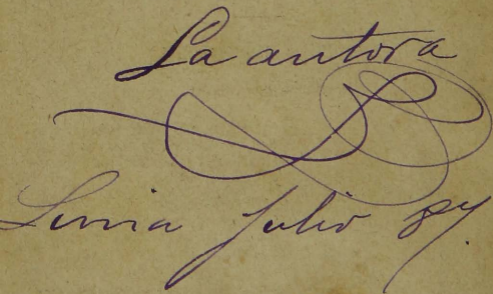 La autora
Lima Julio 84